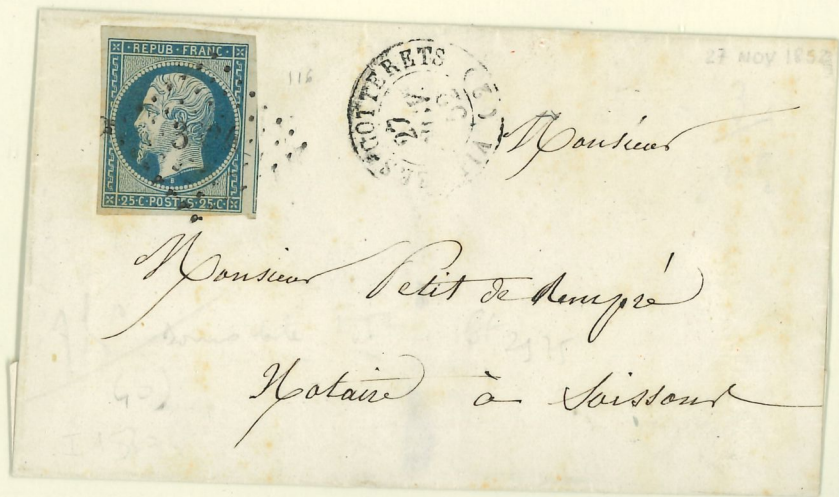 REPUB·FRANC·
25·C·POSTES·25·C·
116
VILLERS-COTTERETS (2)
27
NOV
52
27 NOV 1852
Monsieur
Monsieur Petit de Rempré
Notaire à Soissons